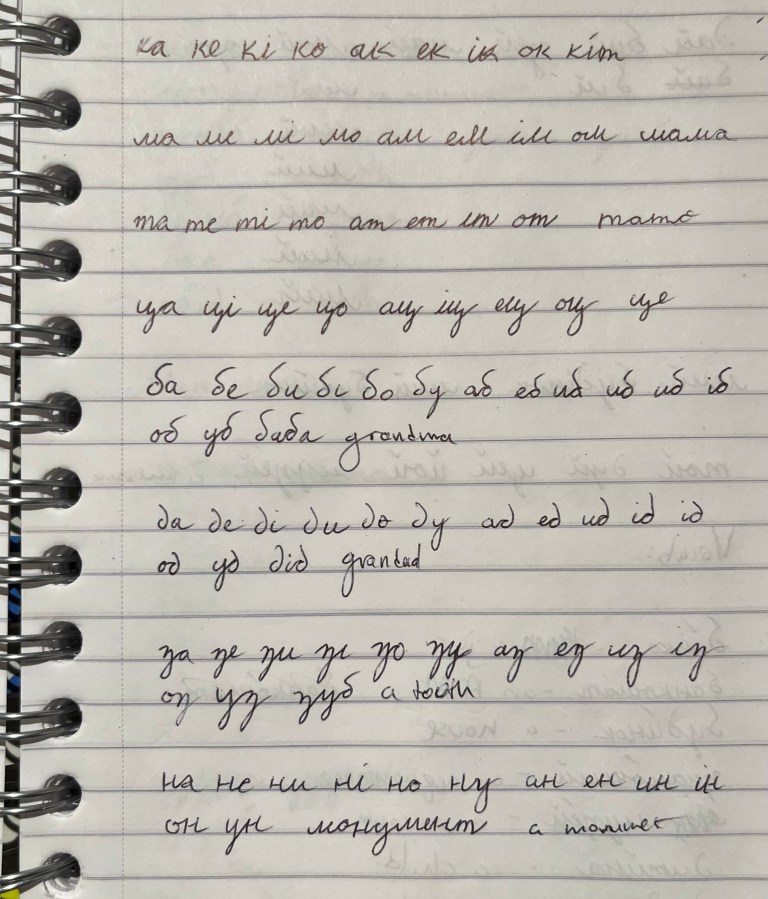 ка ке кі ко ак ек ік ок кіт
ма ме мі мо ам ем ім ом мама
та те ті то ат ет іт от тато
ца ці це цо ац іц ец оц це
ба бе би бі бо бу аб еб иб иб иб іб
об уб баба grandma
да де ді ди до ду ад ед ид ід ід
од уд дід grandad
за зе зи зі зо зу аз ез из із
оз уз зуб a tooth
на не ни ні но ну ан ен ин ін
он ун монумент a